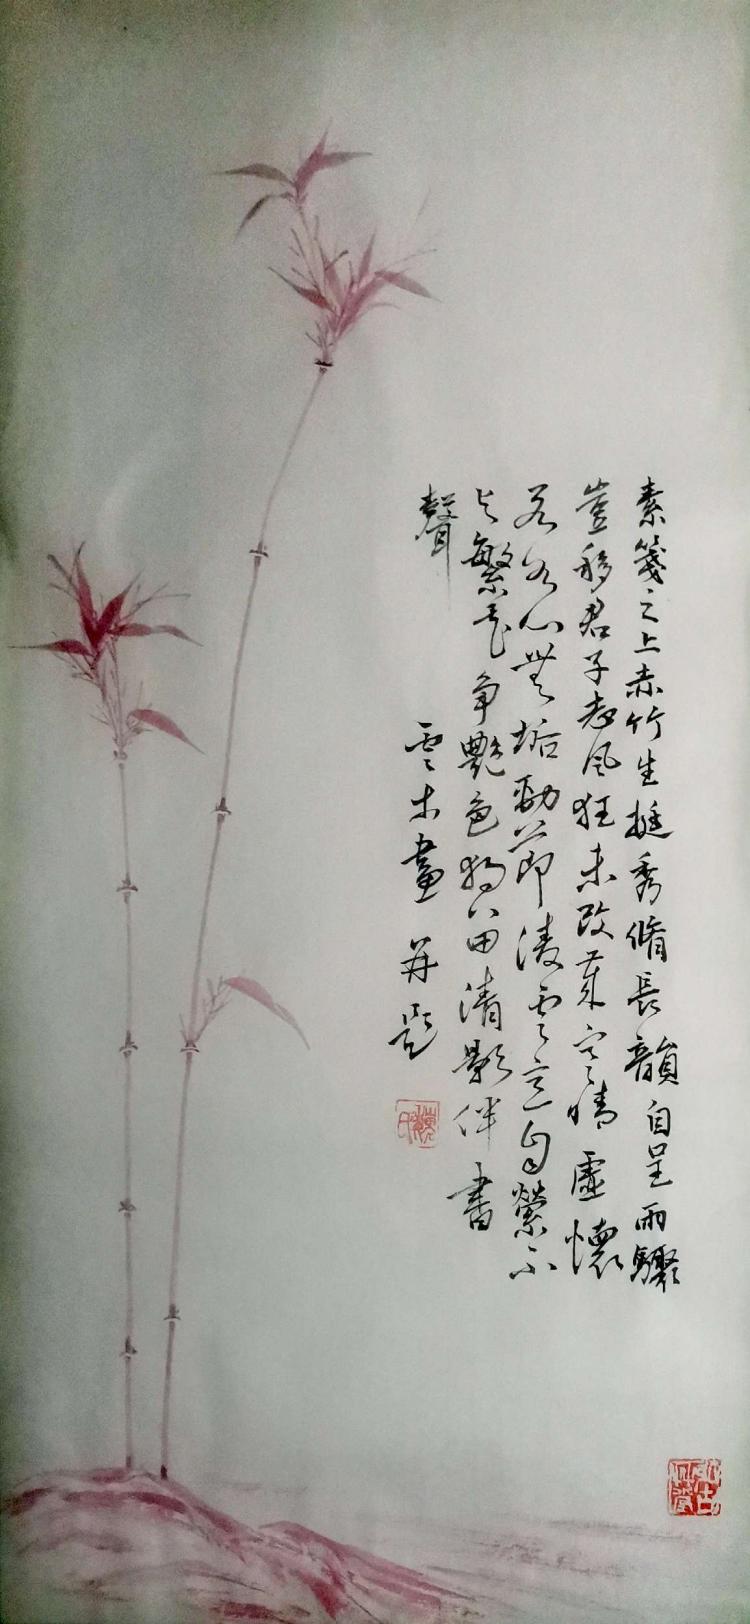 素箋之上赤竹生挺秀脩長韻自呈雨驟
豈移君子志風狂未改歲寒情虛懷
若谷心無垢勁節凌雲意自縈不
与繁花爭艷色獨留清影伴書
聲
雲木畫并題